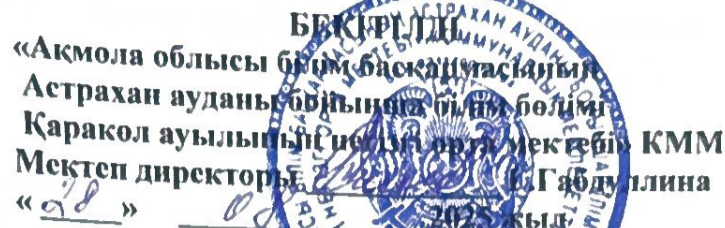 БЕКІТІЛДІ
«Ақмола облысы білім басқармасының
Астрахан ауданы бойынша білім бөлімі
Қаракөл ауылының негізгі орта мектебі» КММ
Мектеп директоры Габдуллина
«28» 2025 жыл